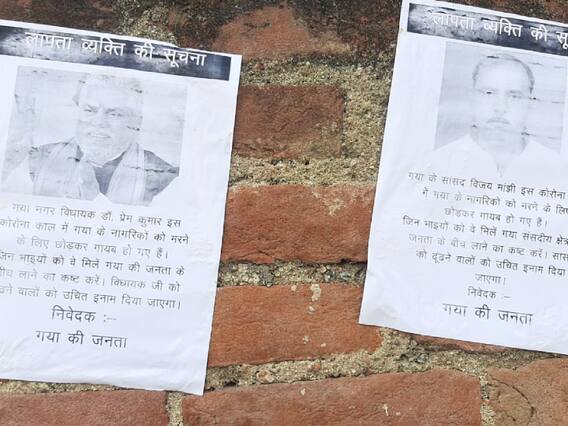 लापता व्यक्ति की सूचना
गया नगर विधायक डॉ. प्रेम कुमार इस
कोरोना काल में गया के नागरिकों को मरने
के लिए छोडकर गायब हो गए है।
जिन भाइयों को वे मिलें गया की जनता के
बीच लाने का कष्ट करें। विधायक जी को
ढूंढने वालों को उचित इनाम दिया जाएगा।
निवेदक :–
गया की जनता
लापता व्यक्ति की सू
गया के सांसद विजय मांझी इस कोरोना
में गया के नागरिकों को मरने के लिए
छोडकर गायब हो गए है।
जिन भाइयों को वे मिलें गया संसदीय क्षेत्र
जनता के बीच लाने का कष्ट करें। सांस
को ढूंढने वालों को उचित इनाम दिया
जाएगा।
निवेदक :–
गया की जनता